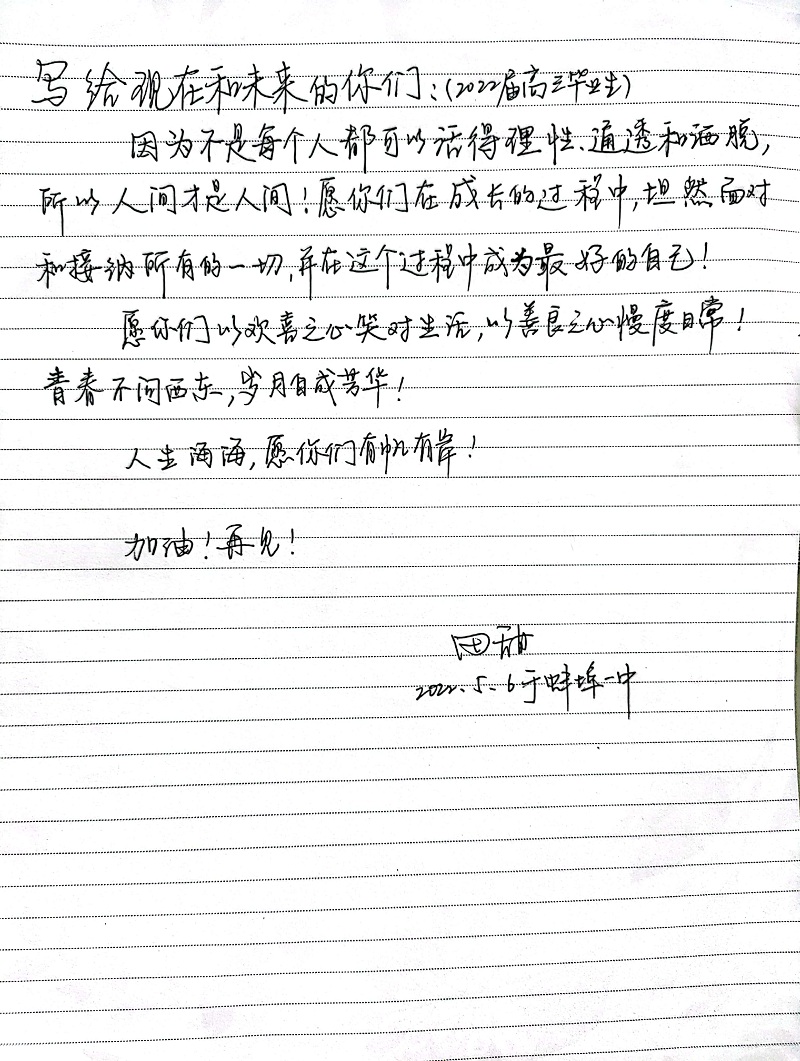 写给现在和未来的你们:(2022届高三毕业生)
因为不是每个人都可以活得理性、通透和洒脱,
所以人间才是人间!愿你们在成长的过程中,坦然面对
和接纳所有的一切,并在这个过程中成为最好的自己!
愿你们以欢喜之心笑对生活,以善良之心慢度日常!
青春不问西东,岁月自成芳华!
人生海海,愿你们有帆有岸!
加油!再见!
田甜
2022.5.6于蚌埠一中